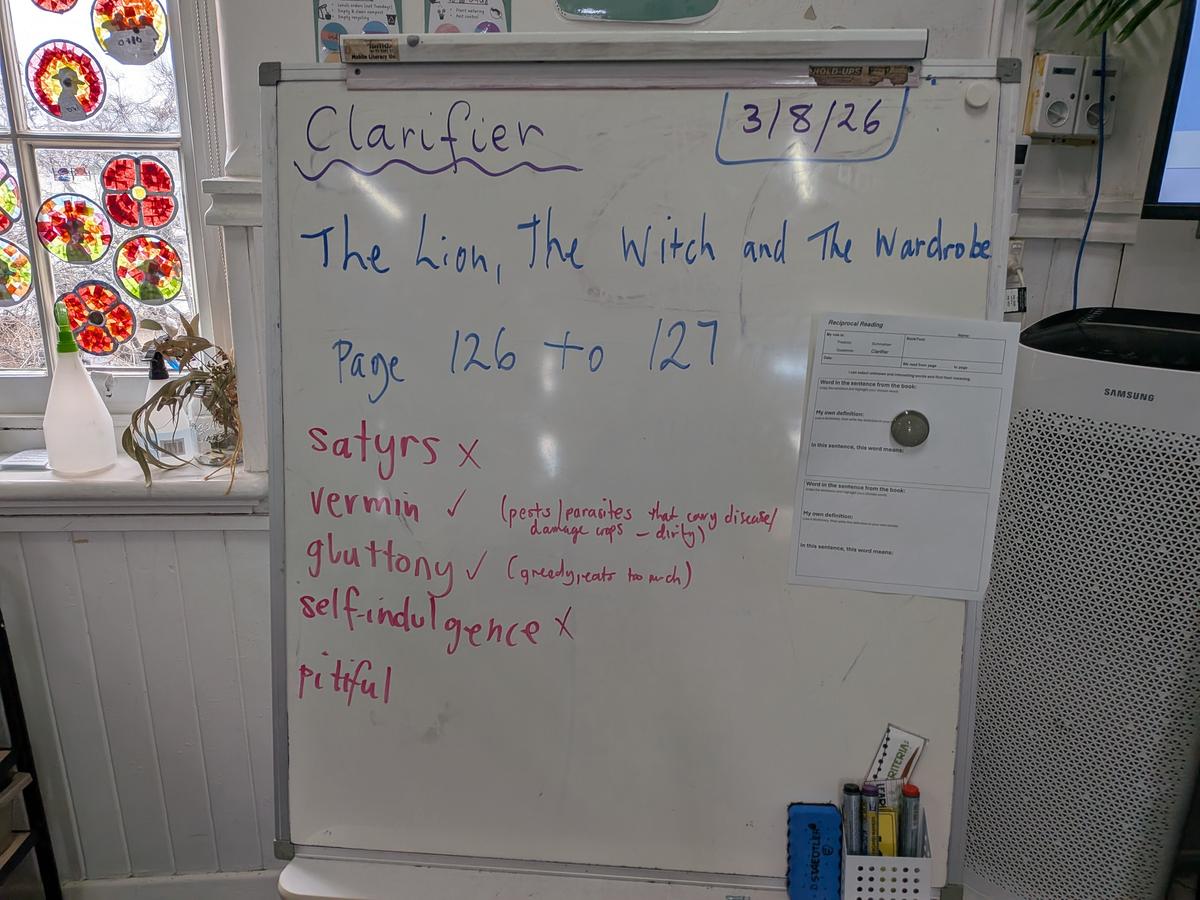 Clarifier
3/8/26
The Lion, The Witch and The Wardrobe
Page 126 to 127
satyrs x
vermin ✓ (pests/parasites that carry disease/
damage crops – dirty)
gluttony ✓ (greedy, eats too much)
self-indulgence x
pitiful
HOLD-UPS
Mobile Literacy
Reciprocal Reading
My role is:
Name:
Summariser
Clarifier
Date:
We read from page
to page
Word in the sentence from the book:
My own definition:
In this sentence, this word means:
Word in the sentence from the book:
My own definition:
In this sentence, this word means:
SAMSUNG
STAEDTLER